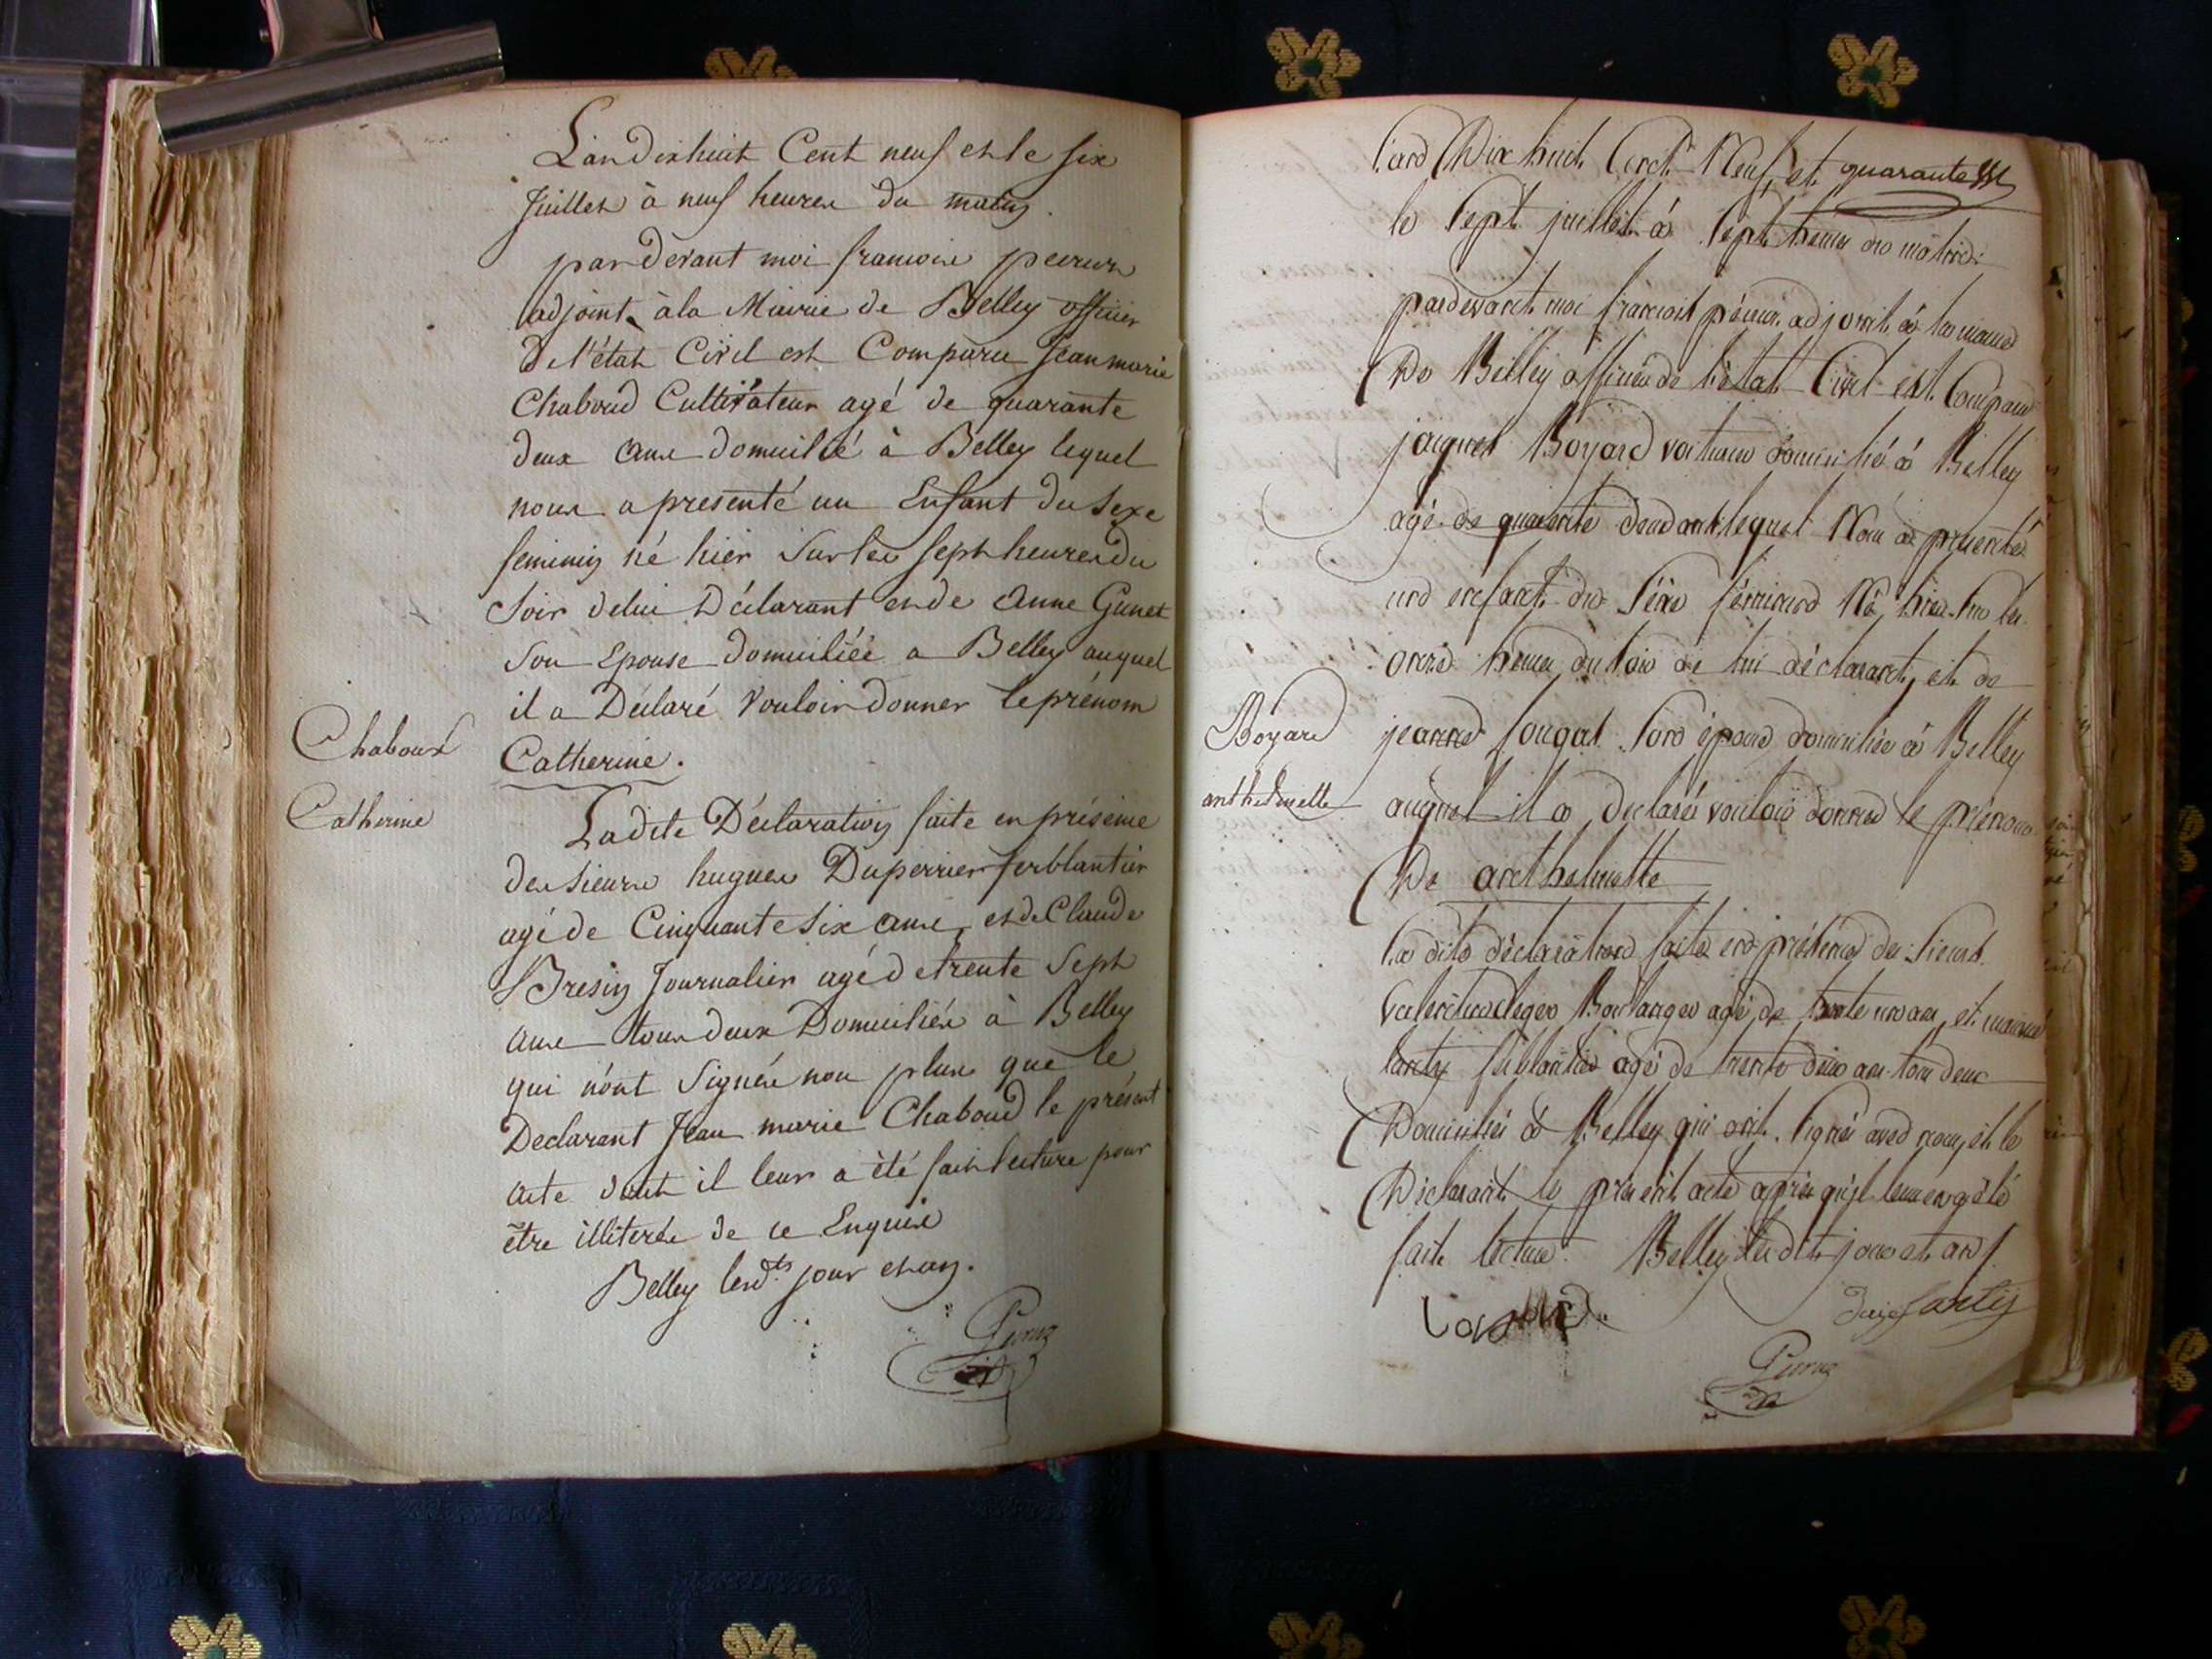 L'an dixhuit Cent neuf et le six
Juillet à neuf heures du matin
par devant moi francois peuruz
adjoint à la Mairie de Belley officier
de l'état Civil est Comparu Jean marie
Chaboud Cultivateur agé de quarante
deux ans domicilié à Belley lequel
nous a presenté un Enfant du sexe
feminin né hier sur les sept heures du
soir delui Déclarant et de Anne Gunet
son Epouse domiciliée a Belley auquel
il a Déclaré Vouloir donner le prénom
Chaboud
Catherine.
Catherine
Ladite Déclaration faite en présence
des sieurs hugues Duperrier ferblantier
agé de Cinquante six ans, et de Claude
Bresin Journalier agé de trente Sept
ans tous deux Domiciliés à Belley
qui n'ont signés non plus que le
Declarant Jean marie Chaboud le présent
acte dont il leur a été fait lecture pour
être illiterés de ce Enquis
Belley lesd.ts jour et an.
L'an Dix huit Cent Neuf et quarante
le sept juillet à sept heures du matin
pardevant moi francois péuruz adjoint à la mairie
De Belley officier de l'état Civil est Comparu
jacques Boyard voiturier domicilié à Belley
agé de quarante deux ans lequel Nous a presenté
un enfant du sexe féminin Né hier sur les
onze heures du soir de lui déclarant, et de
Boyard
jeanne fougat son épouse domiciliée à Belley
anthelmette
auquel il a declaré vouloir donner le prénom
De anthelmette
La dite déclaration faite en présence des sieurs
Boulanger agé de trente un ans, et
lanty ferblantier agé de trente deux ans tous deux
Domiciliés à Belley qui ont signés avec nous, et le
Déclarant le présent acte après qu'il leur en a été
faite lecture. Belley lesdits jour et an
lanty